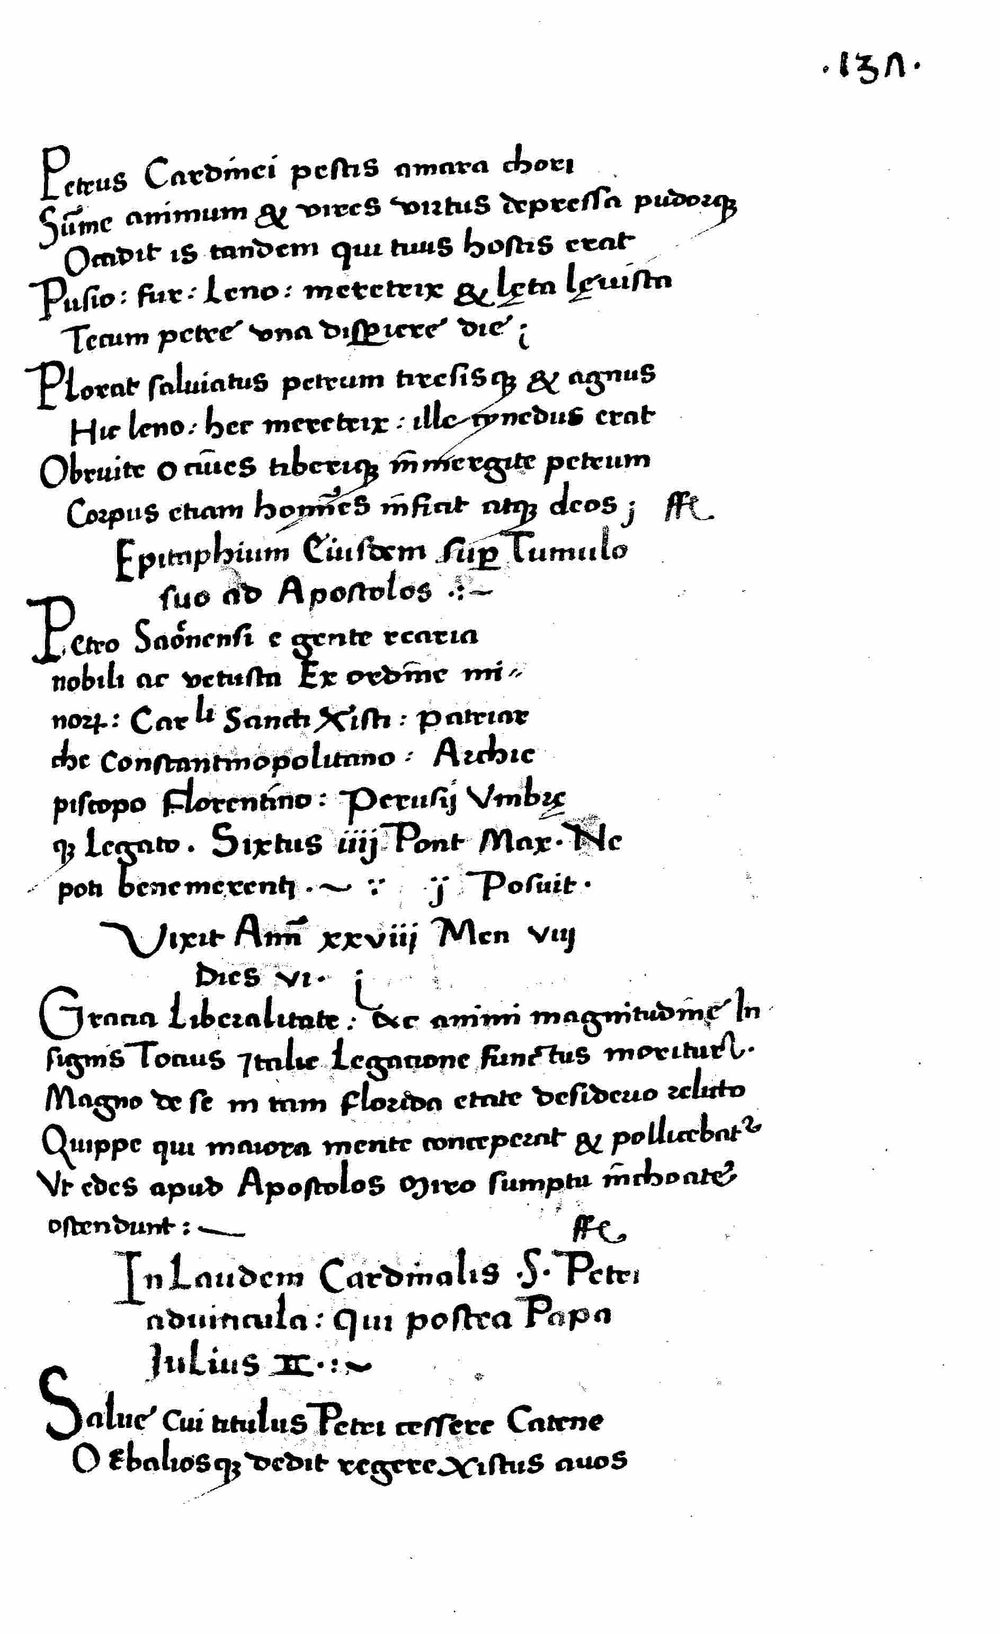 .137.
Petrus Cardinei pestis amara chori
Sūme animum & vires virtus depressa pudorq3
Occidit is tandem qui tuus hostis erat
Pusio: fur: Leno: meretrix & lęta lęuista
Tecum petre una disꝑiere die ;
Plorat salviatus petrum tiresisq3 & agnus
Hic leno: hec meretrix: ille cynedus erat
Obruite o ciues tiberiq3 īmergite petrum
Corpus etiam homīes inficit atq3 deos ;
Epitaphium Eiusdem suꝑ Tumulo
suo ad Apostolos .:~
Petro Saonensi e gente rearia
nobili ac vetusta Ex ordine mi〃
noꝝ: Car li Sancti Xisti: patriar
che Constantinopolitano: Archie
piscopo florentino: Perusij Vmbrię
q3 Legato. Sixtus iiij Pont Max. Ne
poti benemerenti .~ Posuit.
Vixit Ann̄ xxviij Men viij
Dies vi.
Gracia Liberalitate: ac animi magnitudine In
signis Tocius Italie Legacione functus moritur.
Magno de se in tam florida etate desiderio relicto
Quippe qui maiora mente conceperat & pollicebatᵘ
Vt edes apud Apostolos Miro sumptu inchoate
ostendunt: ~
In Laudem Cardinalis .S. Petri
aduincula: qui postea Papa
Julius II .:~
Salue cui titulus Petri cessere Catene
O Ebaliosq3 dedit regere Xistus auos